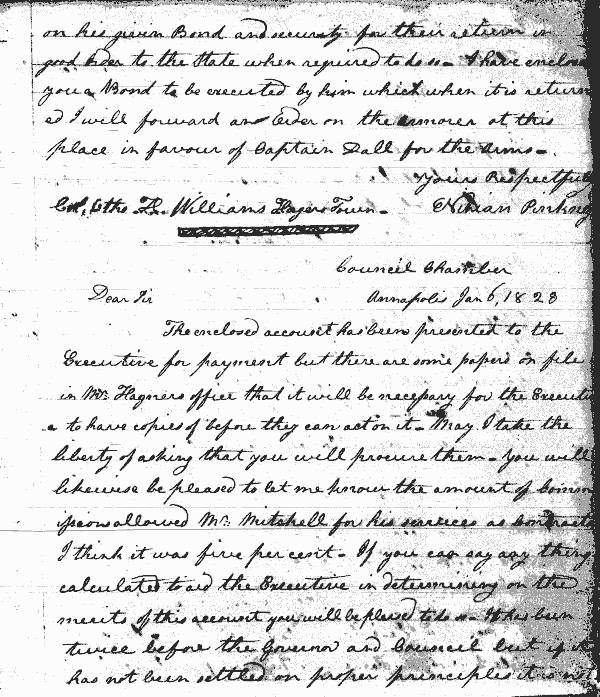 on his given Bond and security for their return in
good order to the State when required to do so - I have enclos
you a Bond to be executed by him which when it is return
ed I will forward an Order on the armorer at this
place in favour of Captain Dall for the arms -
Yours Respectfully
Col. Otho H. Williams Hagers Town - Ninian Pinkney
Council Chamber
Dear Sir Annapolis Jan 6, 1823
The enclosed account has been presented to the
Executive for payment but there are some papers on file
in Mr. Hagners office that it will be necessary for the Executi
to have copies of before they can act on it - May I take the
liberty of asking that you will procure them - You will
likewise be pleased to let me know the amount of Commi
ssions allowed Mr. Mitchell for his services as Contracto
I think it was five per cent - If you can say any thing
calculated to aid the Executive in determining on the
merits of this account you will be pleased to do so - It has been
twice before the Governor and Council but if it
has not been settled on proper principles it is